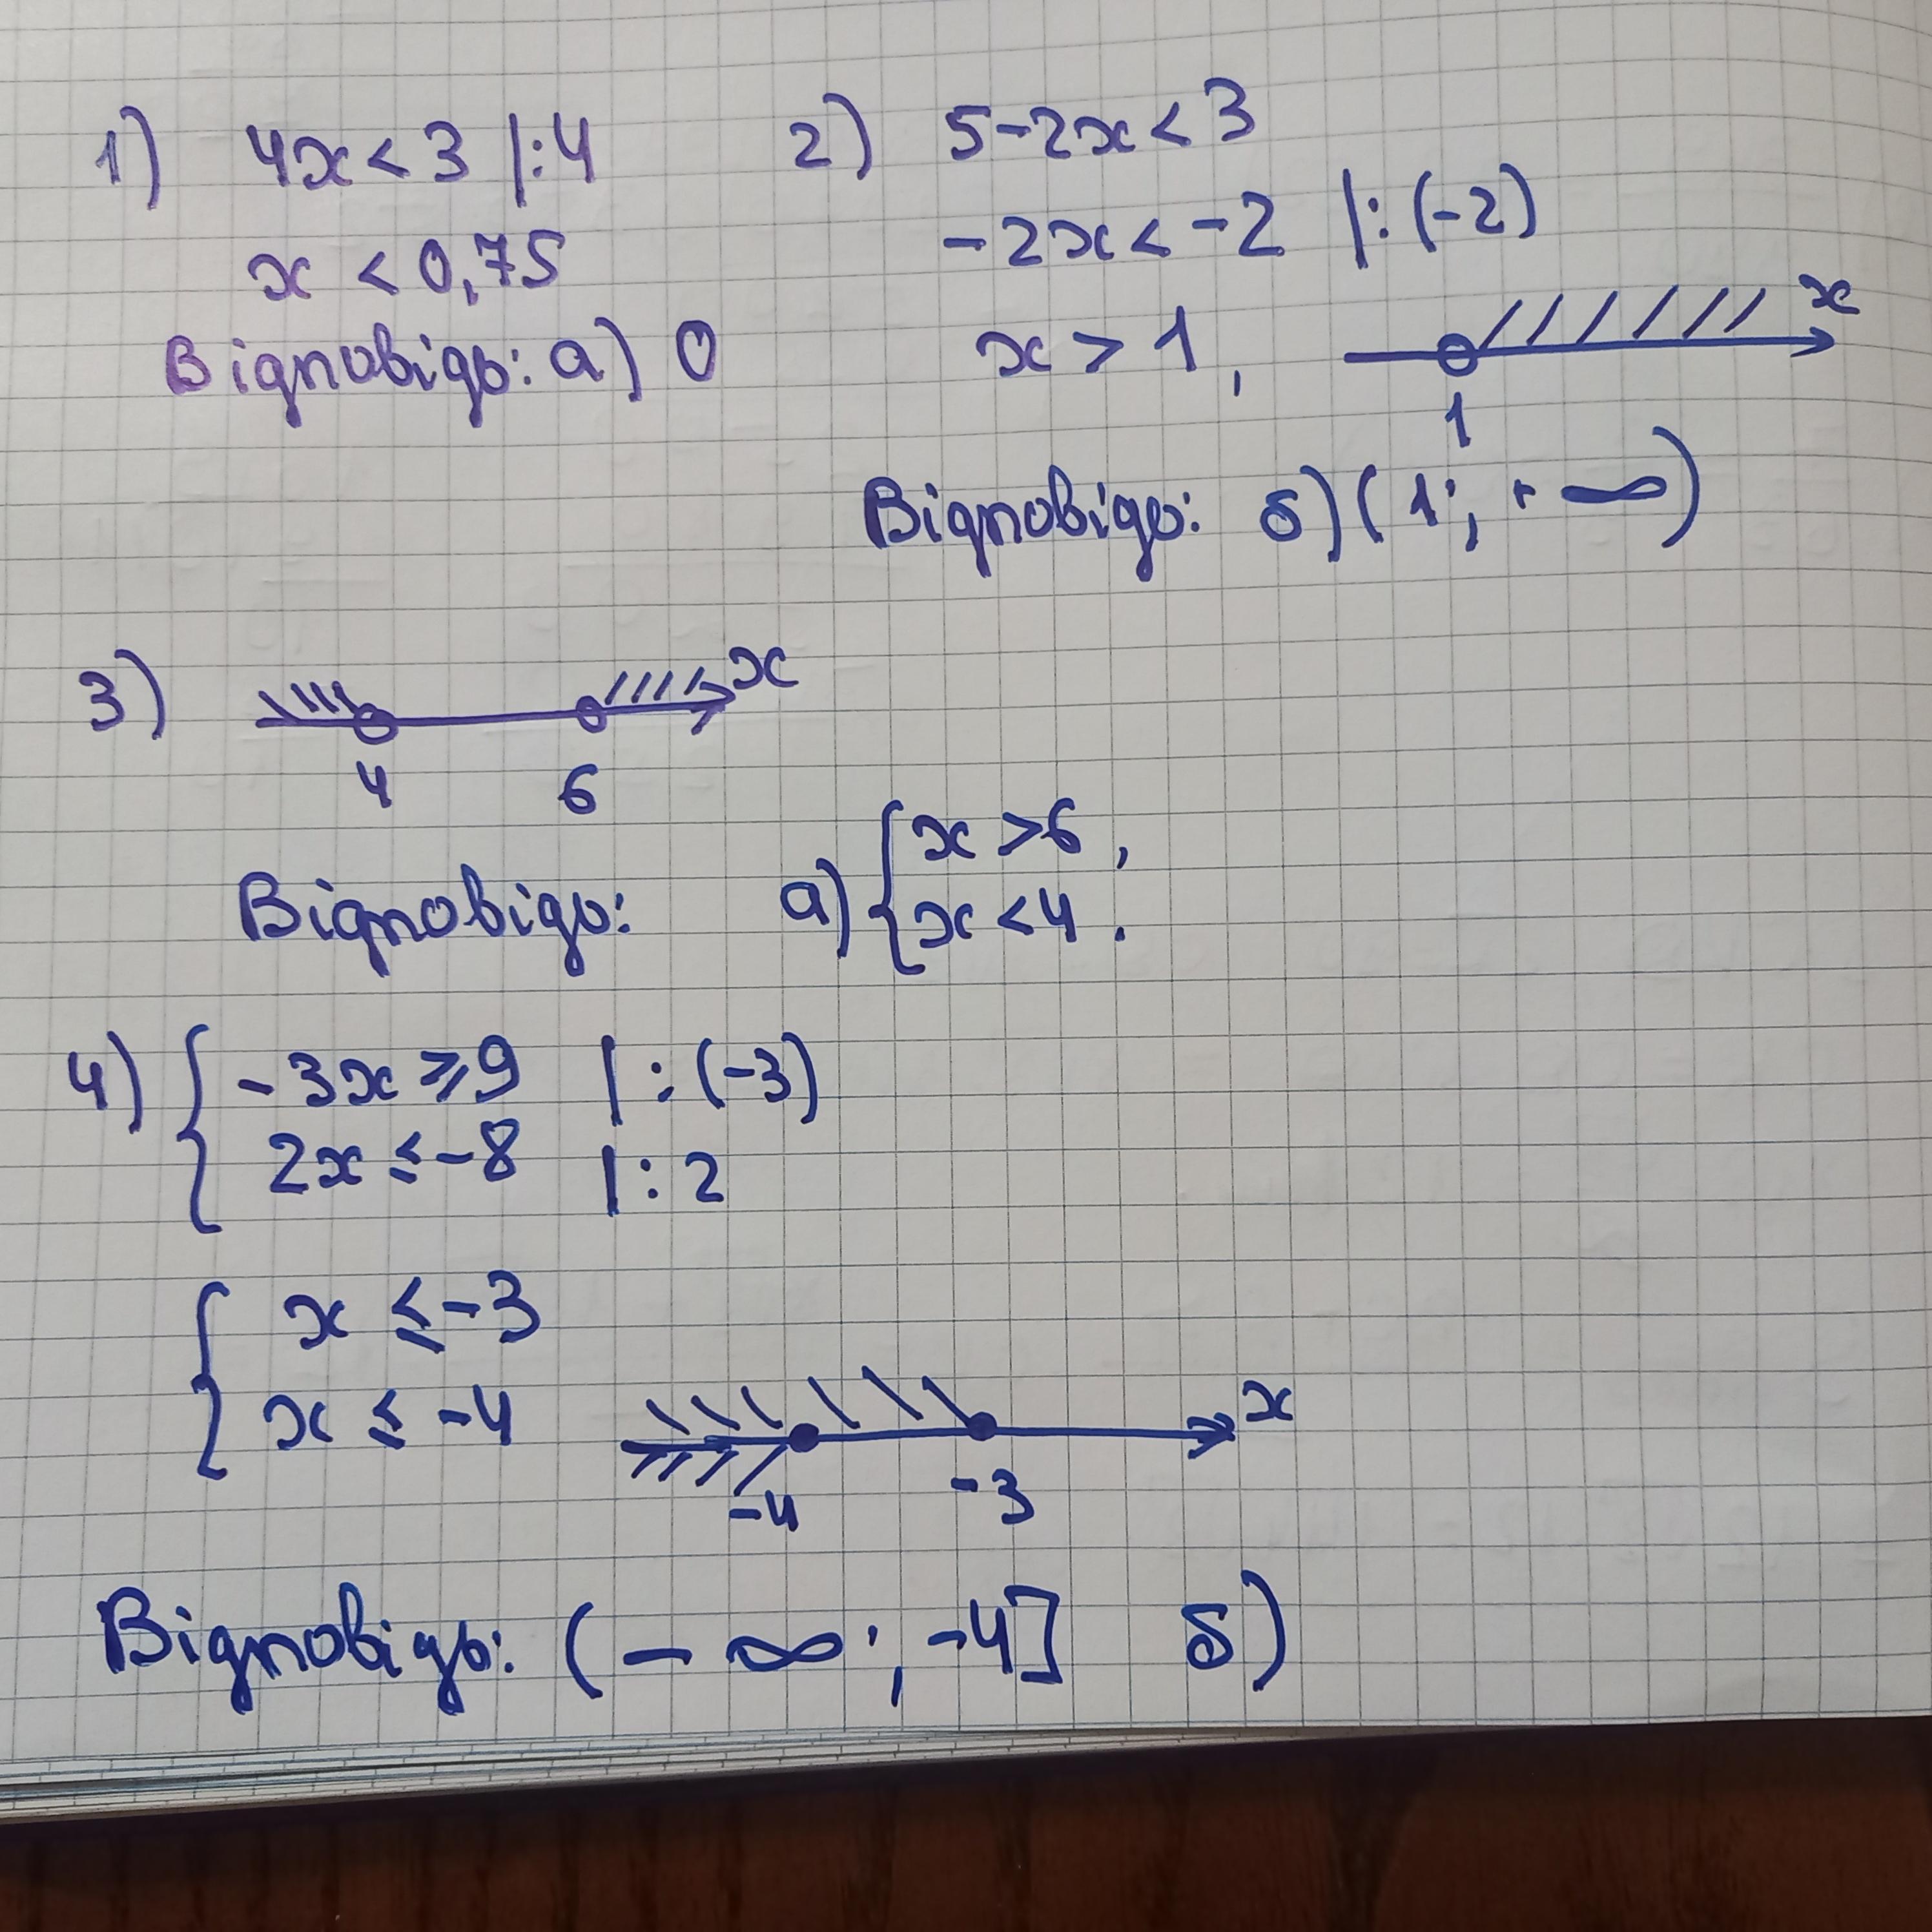 1) 4x < 3 |:4
x < 0,75
Відповідь: а) 0
2) 5-2x < 3
-2x < -2 |:(-2)
x > 1, x
1
Відповідь: б) (1; +∞)
3) x
4 6
Відповідь: а) { x > 6,
x < 4.
4) { -3x ≥ 9 |:(-3)
2x ≤ -8 |:2
{ x ≤ -3
x ≤ -4 x
-4 -3
Відповідь: (-∞; -4] б)